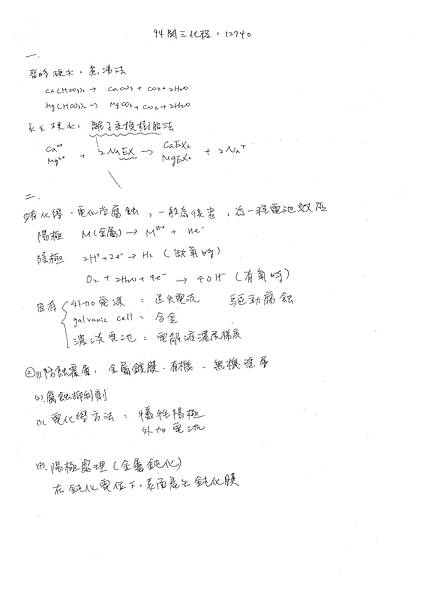 94關三化程·12740
一.
暫時硬水:煮沸法
Ca(HCO3)2 → CaCO3 + CO2 + 2H2O
Mg(HCO3)2 → MgCO3 + CO2 + 2H2O
永久硬水:離子交換樹脂法
Ca²⁺ Mg²⁺ + 2NaEX → CaEX2 MgEX2 + 2Na⁺
二.
①有化學、電化學腐蝕,一般為後者,為一種電池效應
陽極 M(金屬) → Mⁿ⁺ + ne⁻
陰極 2H⁺+2e⁻ → H2 (缺氧時)
O2 + 2H2O + 4e⁻ → 4OH⁻ (有氧時)
因有 外加電源 = 迷失電流 驅動腐蝕
galvanic cell = 合金
濃淡電池 = 電解液濃度梯度
②(1)防蝕覆膚:金屬鍍膜、有機、無機塗層
(2)腐蝕抑制劑
(3)電化學方法:犧牲陽極
外加電流
(4)陽極處理(金屬鈍化)
在鈍化電位下,表面產生鈍化膜